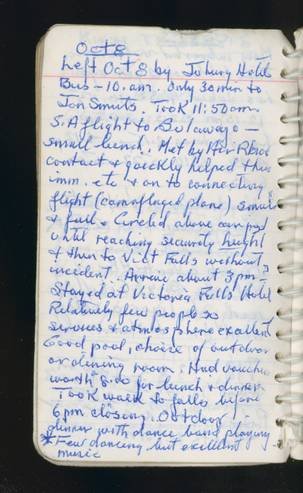 Oct 8
Left Oct 8 by Joburg Hotel
Bus - 10. am. Only 30 min to
Jan Smuts. Took 11:50 am
S.A flight to Bulawayo -
small lunch. Met by Air Rhod
contact & quickly helped thru
imm. etc & on to connecting
flight (camouflaged plane) small
& full. Circled above airport
until reaching security height
& then to Vict Falls without
incident. Arrive about 3 pm -
Stayed at Victoria Falls Hotel
Relatively few people so
services & atmosphere excellent
Good pool, choice of outdoor
or dining room. Had voucher
worth $ for lunch & dinner
Took walk to falls before
6 pm closing. Outdoor
dinner with dance band playing
*Few dancing but excellent
music